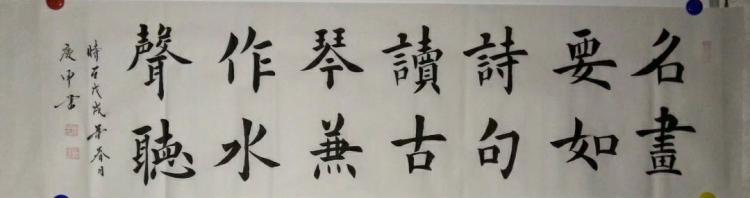 名畫
要如
詩句
讀古
琴兼
作水
聲聽
時在戊戌春
庚申書